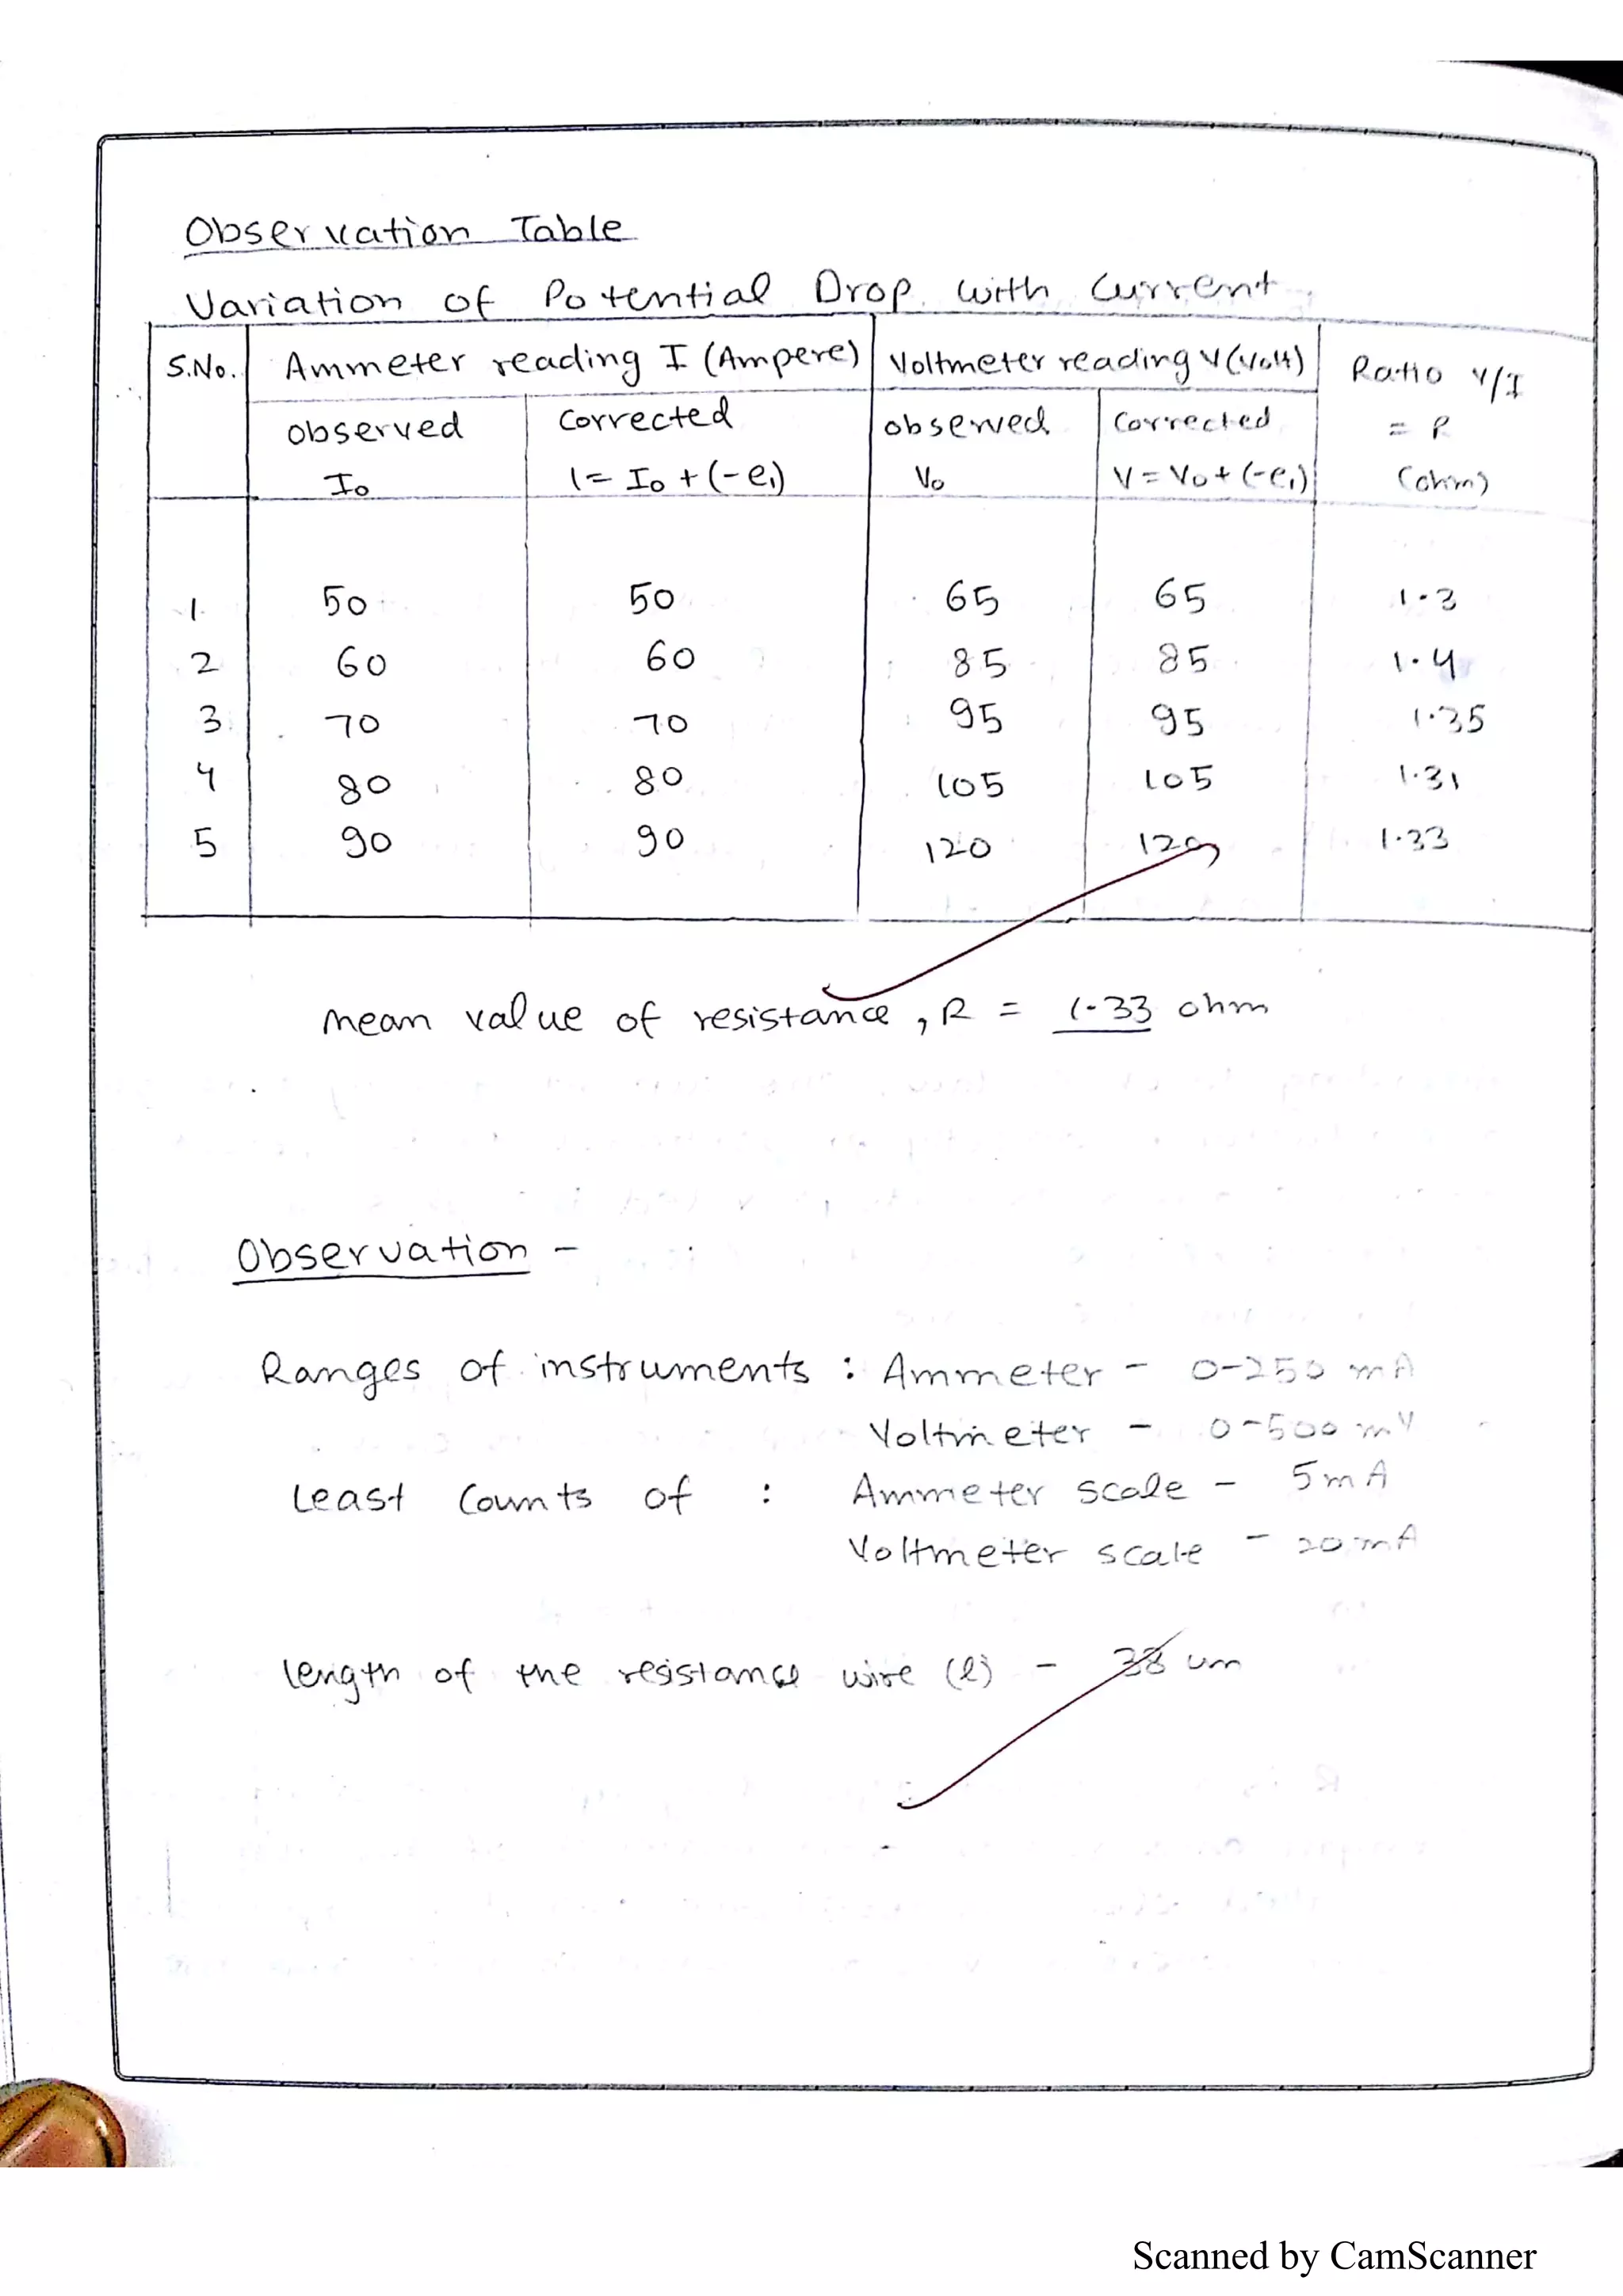 Observation Table
Variation of Potential Drop with Current
S.No. Ammeter reading I (Ampere) Voltmeter reading V (Volt) Ratio V/I
observed Corrected observed Corrected = R
I₀ I = I₀ + (-e₁) V₀ V = V₀ + (-e₁) (ohm)
1. 50 50 65 65 1.3
2 60 60 85 85 1.4
3 70 70 95 95 1.35
4 80 80 105 105 1.31
5 90 90 120 120 1.33
Mean value of resistance, R = 1.33 ohm
Observation -
Ranges of instruments : Ammeter - 0-250 mA
Voltmeter - 0-500 mV
Least Counts of : Ammeter scale - 5 mA
Voltmeter scale - 20 mA
length of the resistance wire (l) - 38 cm
Scanned by CamScanner